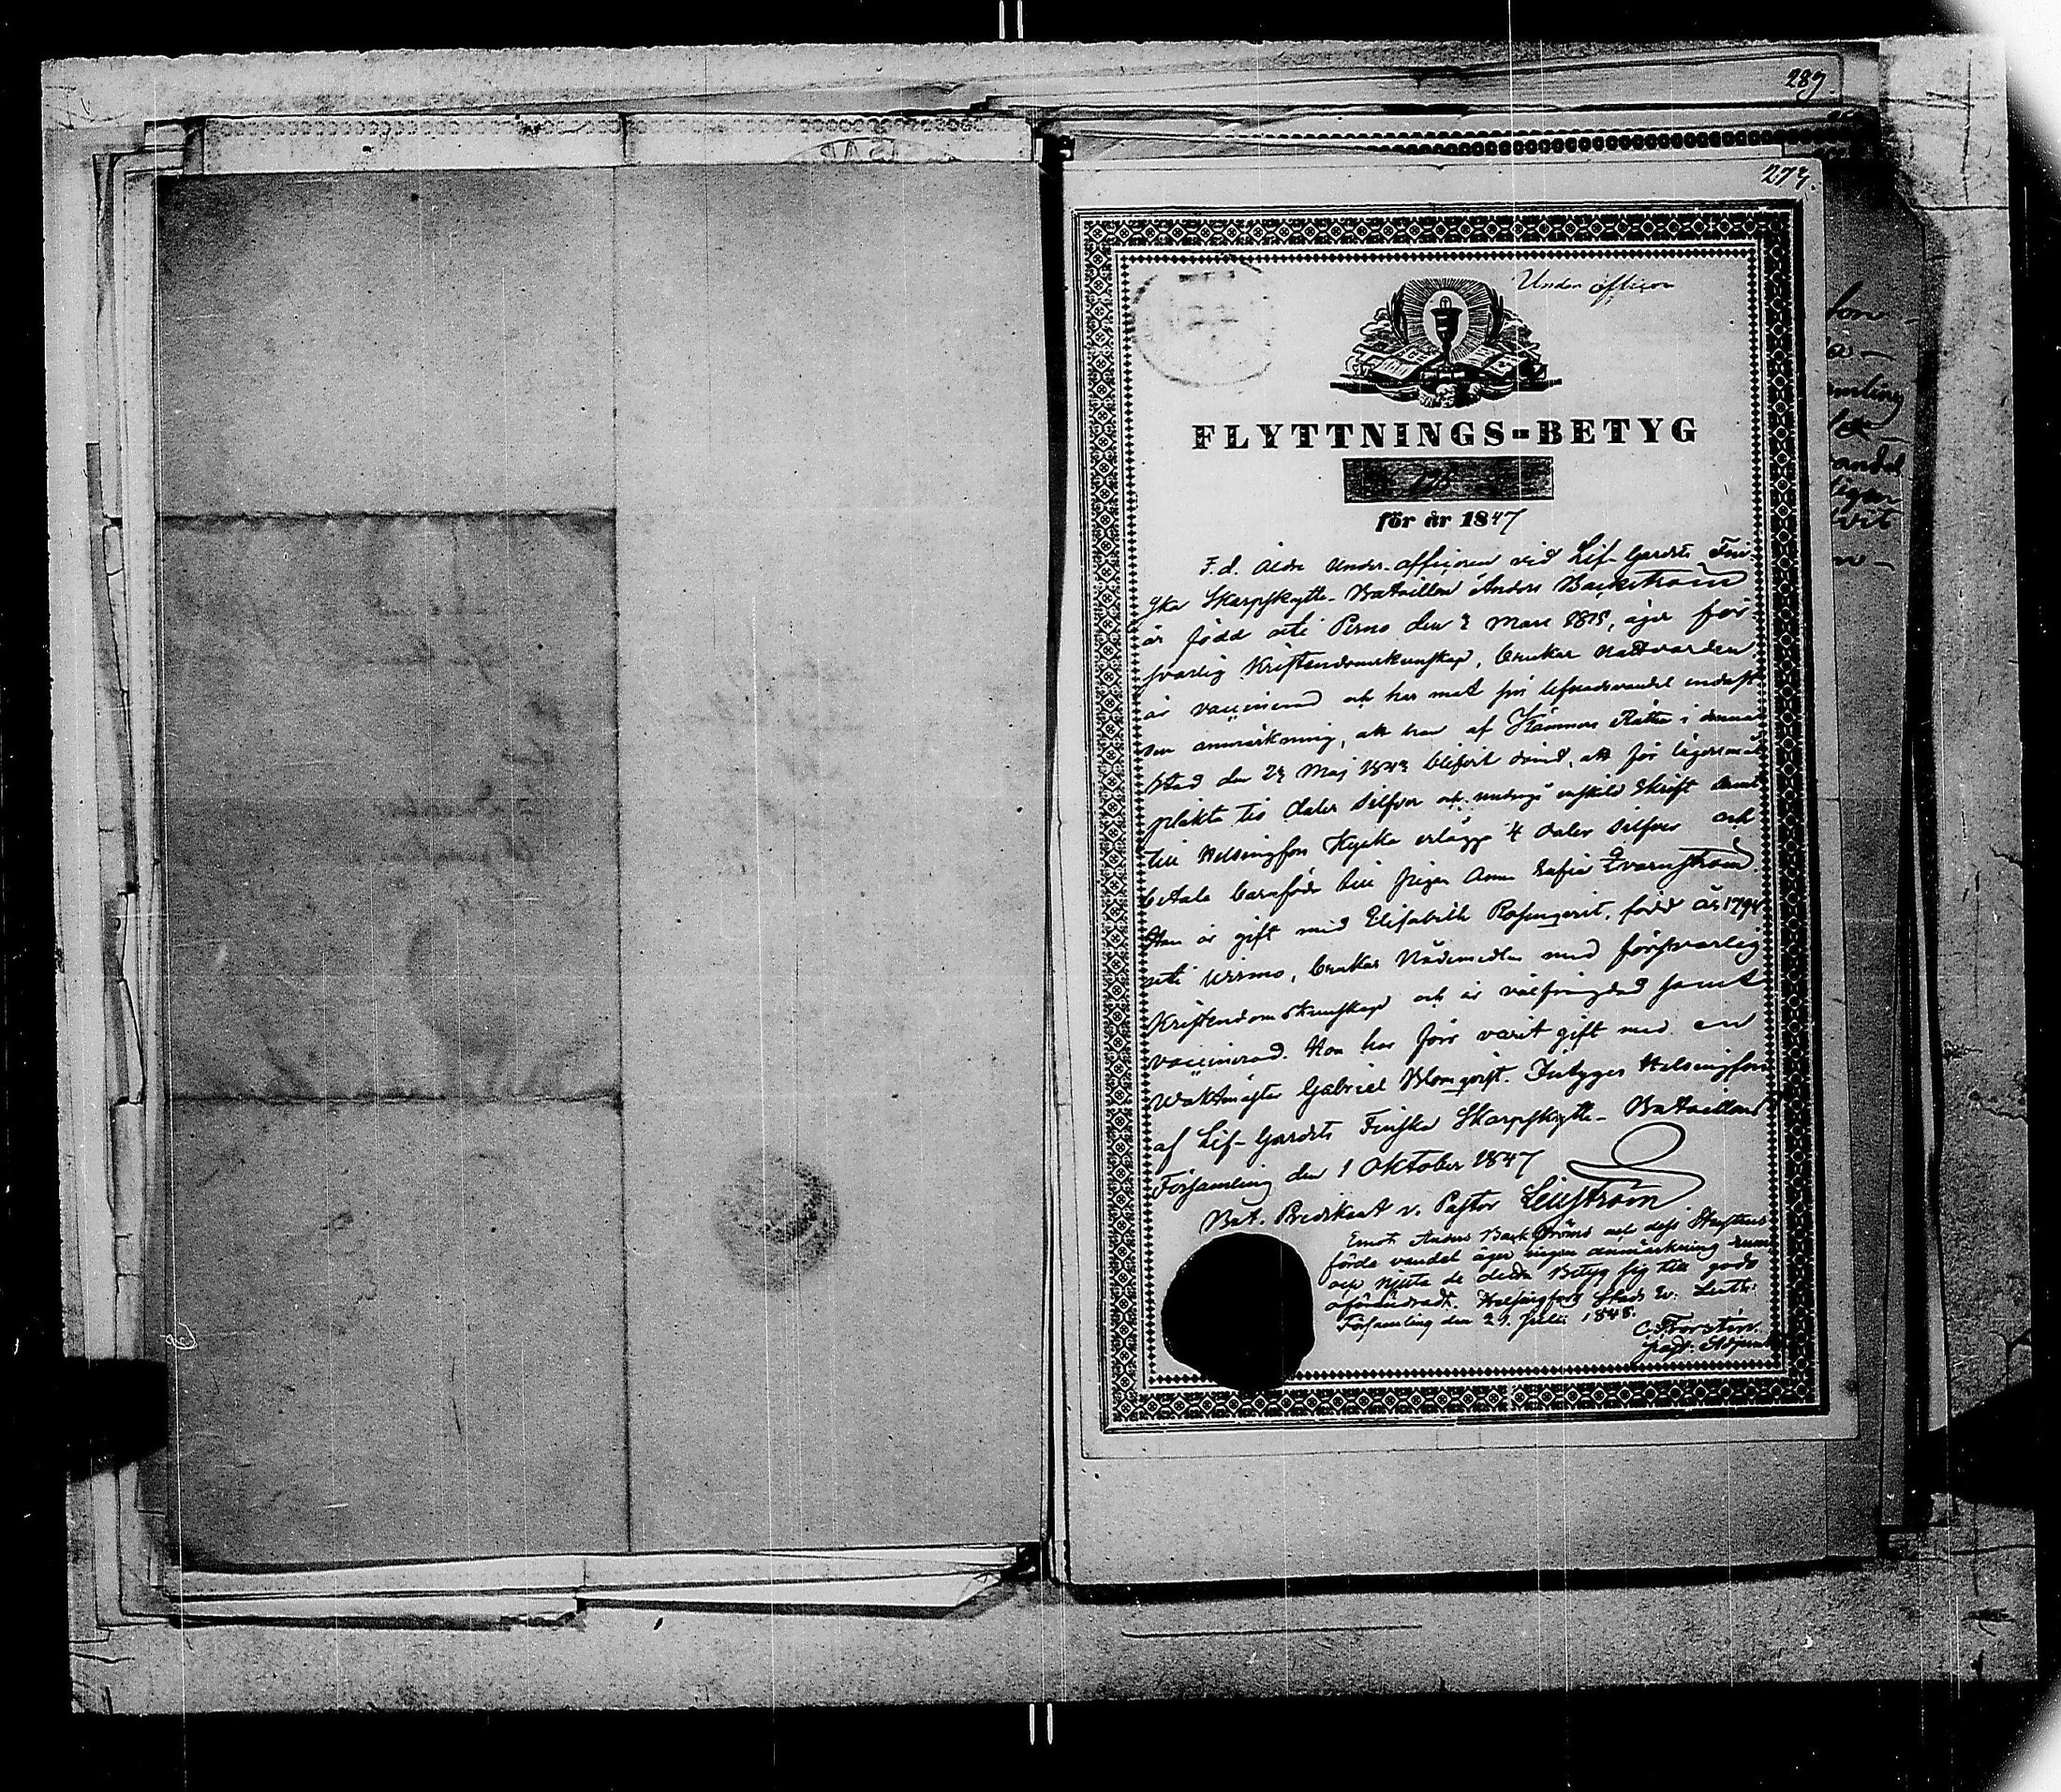 289.
277.
Under officer
FLYTTNINGS-BETYG
för år 1847
F. d. Äldre Under-officeren vid Lif-Gardets Fin-
ska Skarpskytte-Bataillon Anders Backström
är född uti Perno den 2 Mars 1815, äger för-
svarlig Kristendomskunskap, brukar Nattvarden
är vaccinerad och har mot sin lefnadsvandel endast
den anmärkning, att han af Kämners Rätten i denna
stad den 23 Maj 1843 blifvit dömd, att för lägersmål
plikta tio daler silfver och undergå enskild skrift samt
till Helsingfors Kyrka erlägga 4 daler silfver och
betala barnföda till pigan Anna Sofia Qvarnström.
Han är gift med Elisabeth Rosengvist, född år 1794
uti Urismo, brukar Nådemedlen med försvarlig
Kristendomskunskap och är välfrägdad samt
vaccinerad. Hon har förr varit gift med en
waktmäster Gabriel Blomqvist. Intygar Helsingfors
af Lif-Gardets Finska Skarpskytte-Bataillons
Församling den 1 Oktober 1847
Bat. Predikant v. Pastor Lenström
Emot Anders Backströms och dess Hustrus
förda vandel äger ingen anmärkning rum
och njuta de detta Betyg sig till godo
oförändradt. Helsingfors Stads Ev. Luth:
Församling den 29. Juli 1848.
C. Forström.